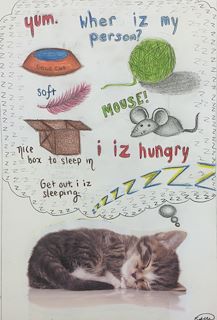 yum.
Wher iz my
person?
soft
MOUSE!
nice
box to sleep in
i iz hungry
Get out i iz
sleeping.
zzzzzzz